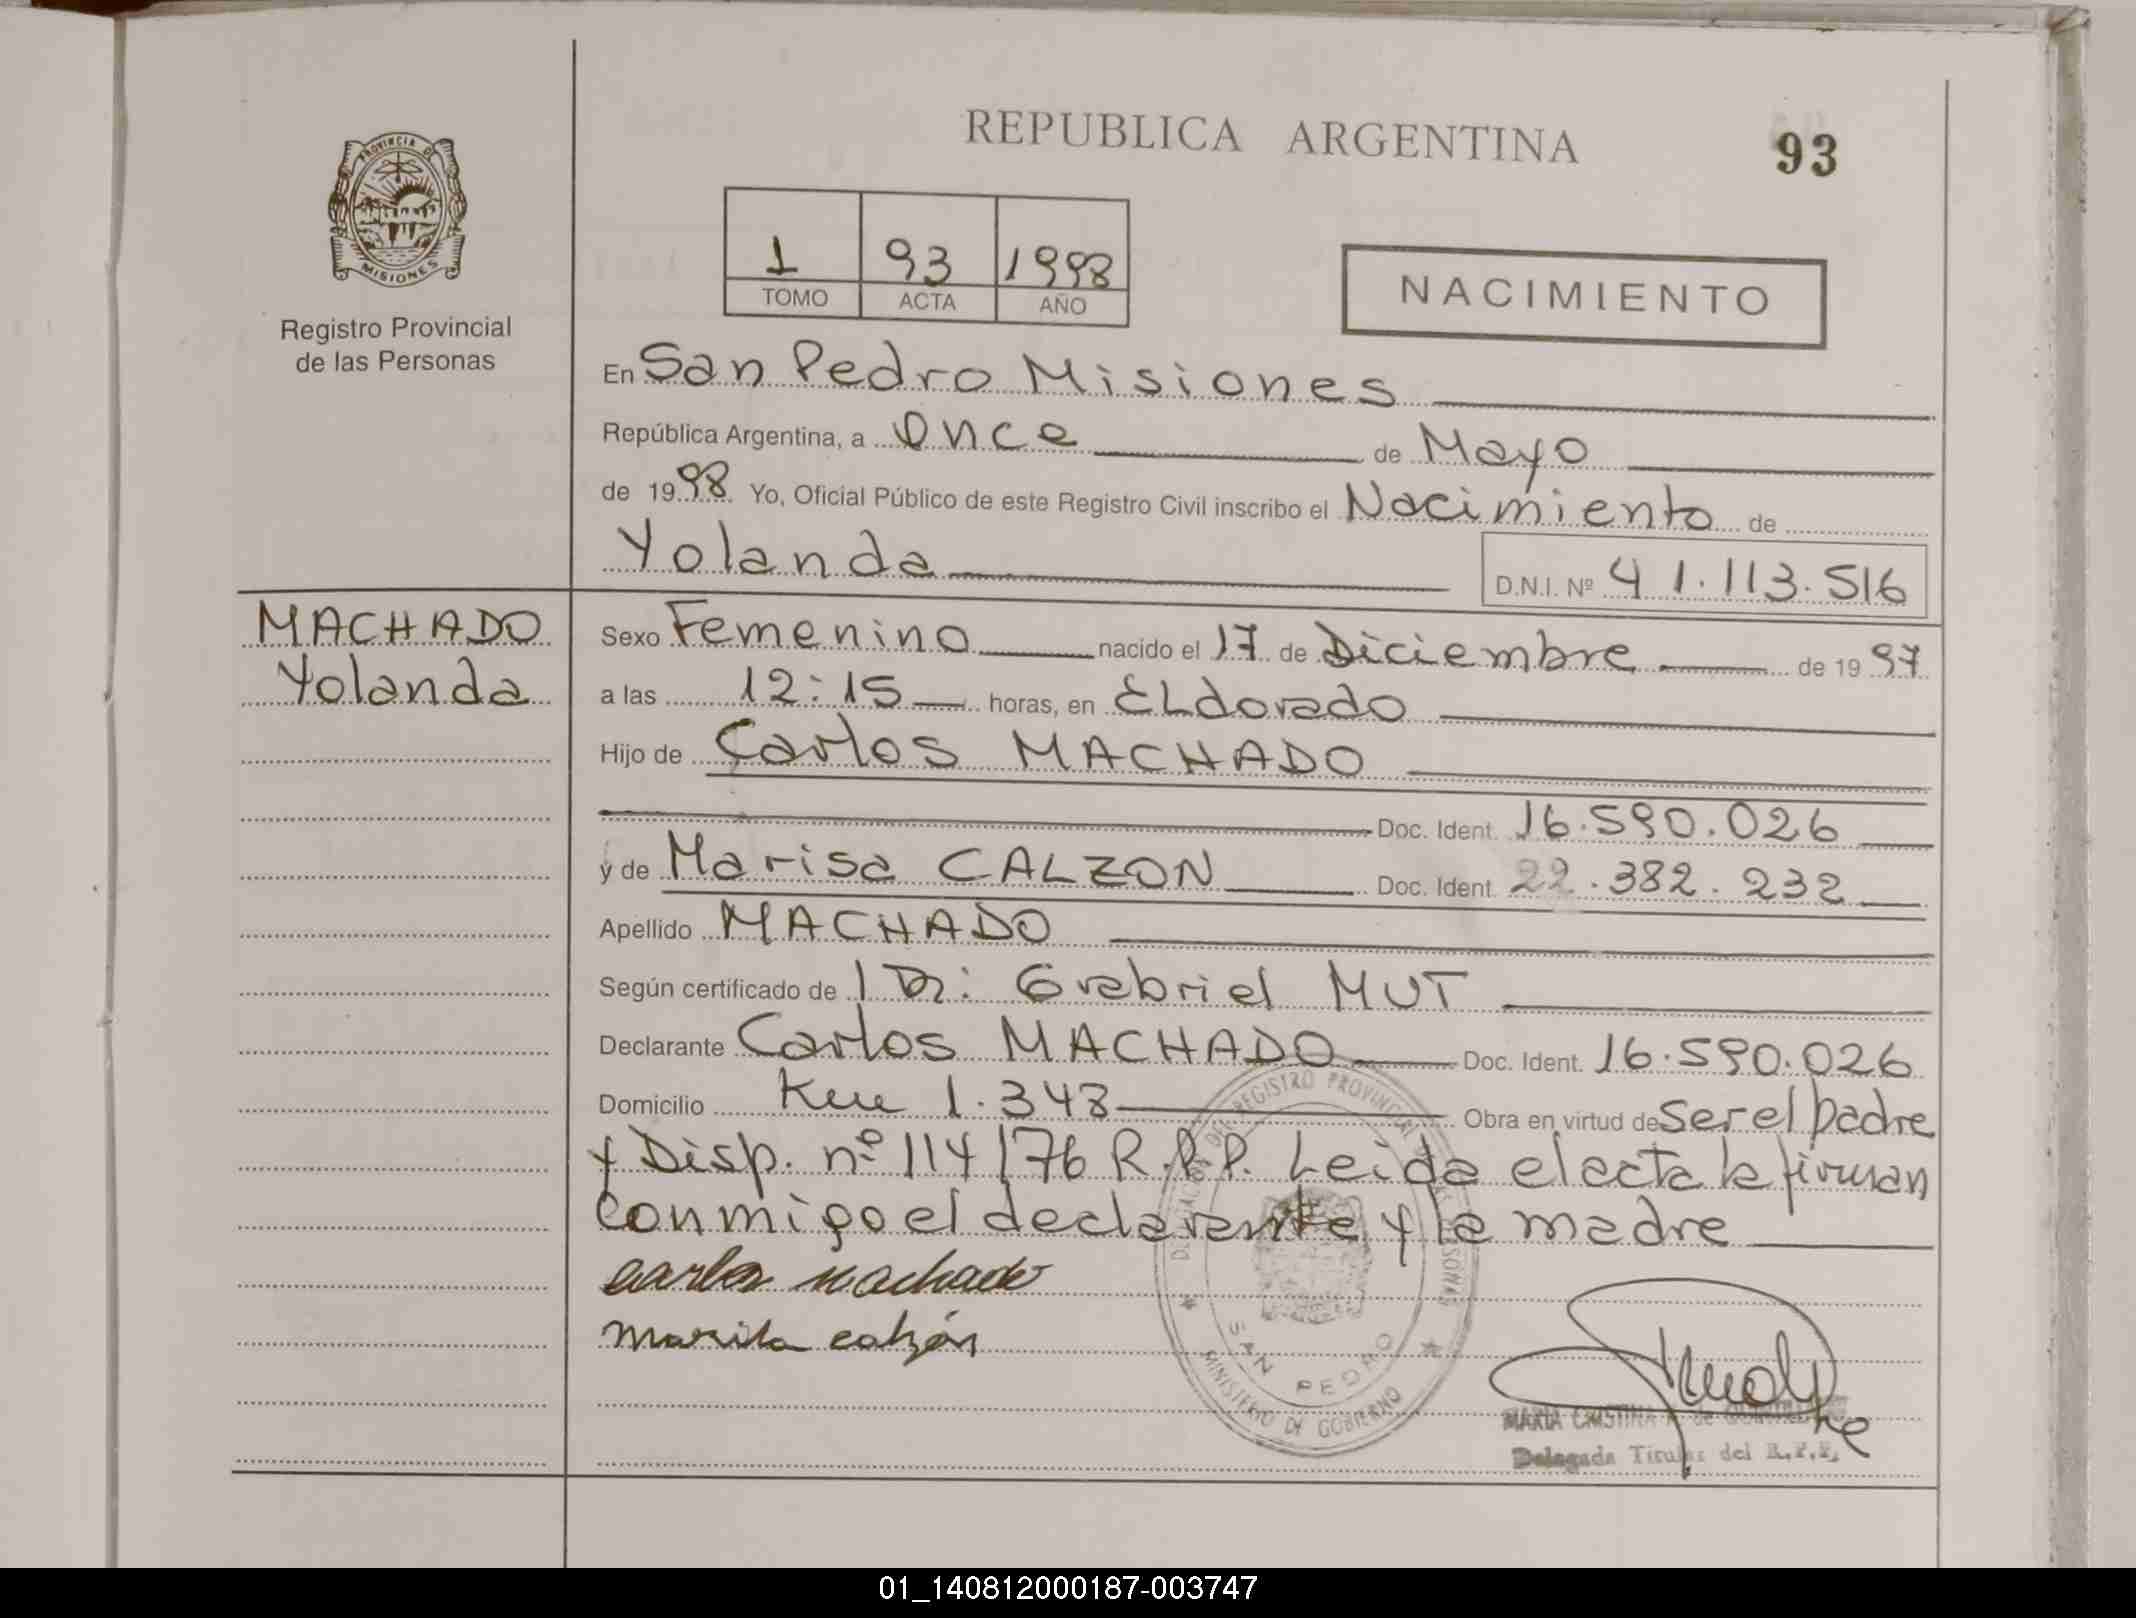 REPUBLICA ARGENTINA
93
PROVINCIA DE
MISIONES
Registro Provincial
de las Personas
1 93 1998
TOMO ACTA AÑO
NACIMIENTO
En San Pedro Misiones
República Argentina, a Once de Mayo
de 1998 Yo, Oficial Público de este Registro Civil inscribo el Nacimiento de
Yolanda D.N.I. Nº 41.113.516
MACHADO
Yolanda
Sexo Femenino nacido el 17 de Diciembre de 1997
a las 12:15 horas, en ELdorado
Hijo de Carlos MACHADO
Doc. Ident. 16.590.026
y de Marisa CALZON Doc. Ident. 22.382.232
Apellido MACHADO
Según certificado de l Dr: Grabriel MUT
Declarante Carlos MACHADO Doc. Ident. 16.590.026
Domicilio Km 1.343 Obra en virtud de Ser el padre
y Disp. nº 114/76 R.P.P. Leida el acta la firman
conmigo el declarante y la madre
carlos machado
marisa calzón
DELEGACION DEL REGISTRO PROVINCIAL DE LAS PERSONAS
SAN PEDRO
MINISTERIO DE GOBIERNO
MARIA CRISTINA de
Delegada Titular del R.P.P.
01_140812000187-003747